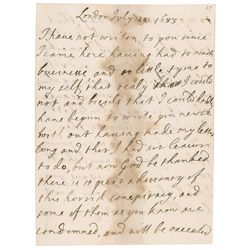 London July 1683
I have not writen to you since
I came here having had so much
business and so little tyme to
my self, that realy I could
not and besids that I could
have begun to write you
but having made my letter
long and that I had not leasur
to do, but now God be thanked
there is a discovery of
this horrid conspiracy, and
some of them as you know are
condemned, and will be executed